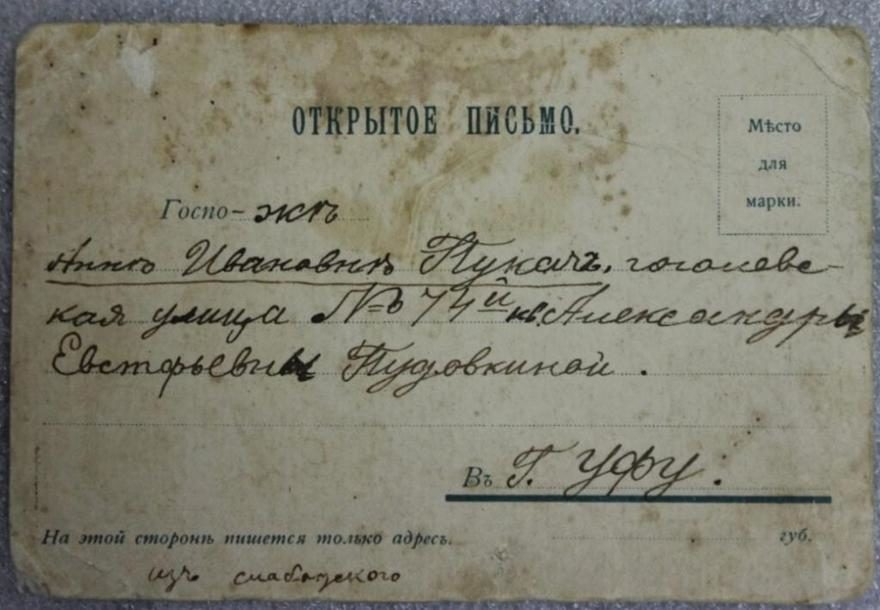 ОТКРЫТОЕ ПИСЬМО.
Мѣсто
для
марки.
Госпо-жѣ
Аннѣ Ивановнѣ Пукачъ. гоголевс-
кая улица №ъ 74й кв. Александры
Евстфьевны Пудовкиной.
Въ Г. Уфу.
На этой сторонѣ пишется только адресъ.
губ.
изъ слабодского